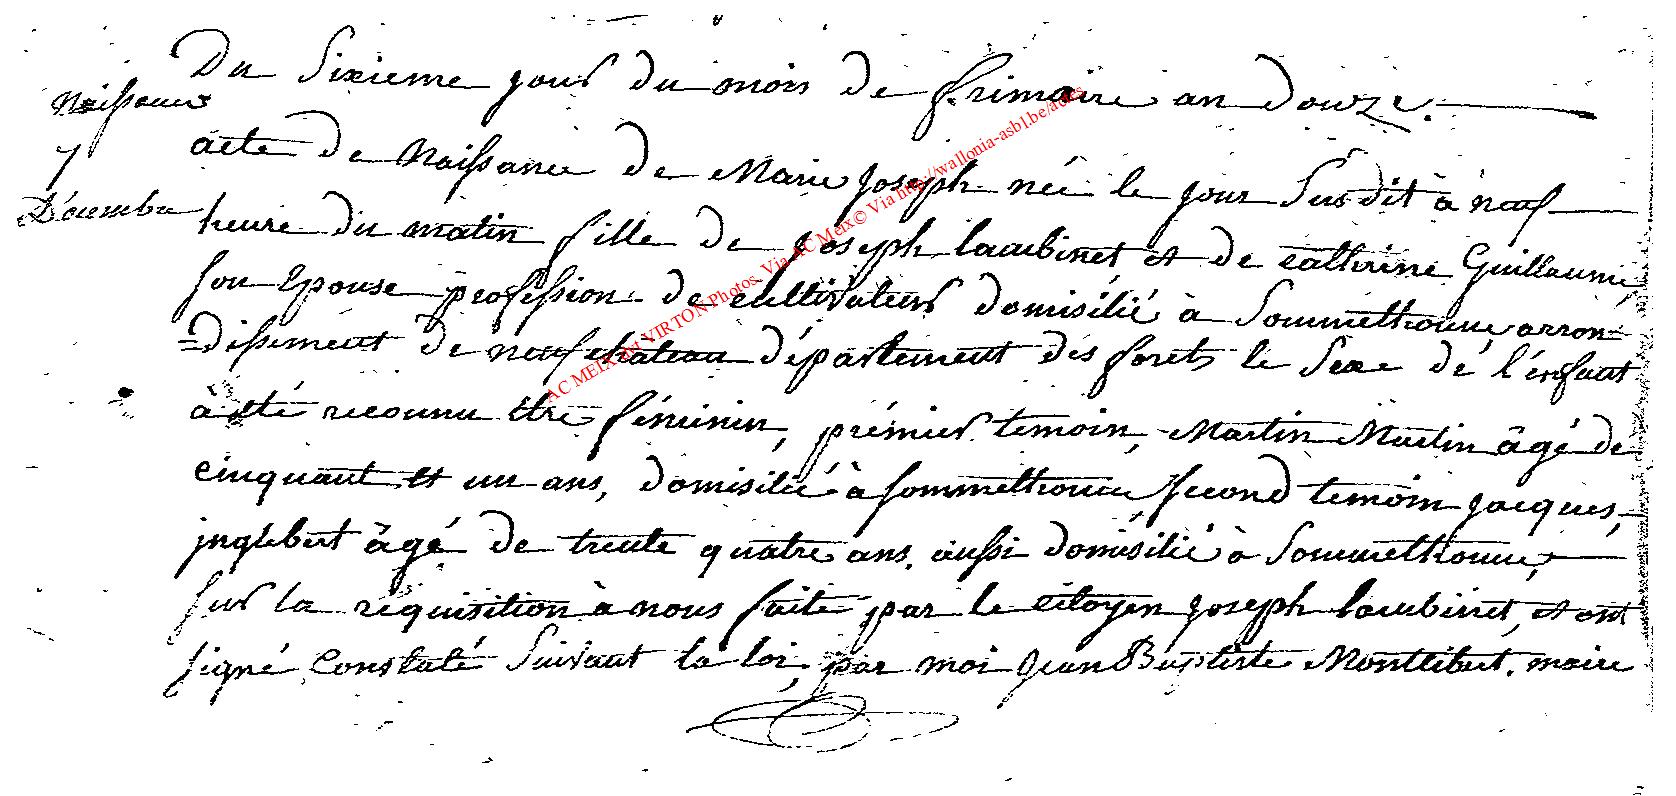 Du Sixieme jour du mois de frimaire an douze.
Naissance
7
Décembre
acte de Naissance de Marie Joseph née le jour Susdit à neuf
heure du matin fille de Joseph Lambinet et de Catherine Guillaume,
son Epouse profession de cultivateur domisilié à Sommethonne, arron
=dissement de neufchateau département des forets le Sexe de l'énfant
à été reconnu être féminin, prémier temoin, Martin Martin âgé de
cinquant et un ans, domisilié à Sommethonne second temoin jacques,
jnglebert âgé de trente quatre ans, aussi domisilié à Sommethonne,
sur la réquisition à nous faite par le citoyen joseph lambinet, et ont
signé, Constaté Suivant la loi, par moi Jean Baptiste Montlibert. maire
AC MEIX DT VIRTON Photos Via AC Meix© Via http://wallonia-asbl.be/actes